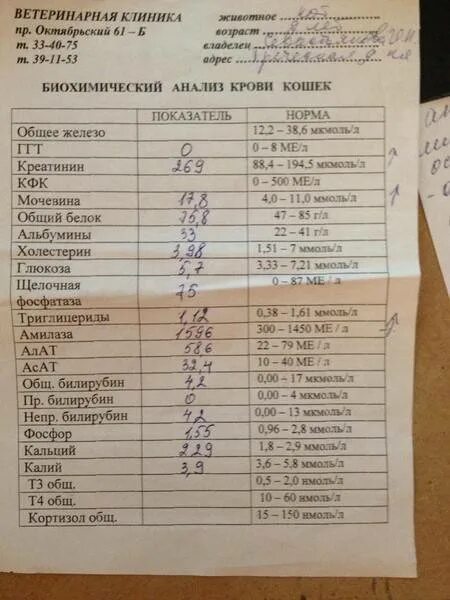 ВЕТЕРИНАРНАЯ КЛИНИКА животное кот
пр. Октябрьский 61 – Б возраст
т. 33-40-75 владелец
т. 39-11-53 адрес
БИОХИМИЧЕСКИЙ АНАЛИЗ КРОВИ КОШЕК
ПОКАЗАТЕЛЬ НОРМА
Общее железо 12,2 – 38,6 мкмоль/л
ГГТ 0 0 – 8 МЕ/л
Креатинин 269 88,4 – 194,5 мкмоль/л ↑
КФК 0 – 500 МЕ/л
Мочевина 17,8 4,0 – 11,0 ммоль/л ↑
Общий белок 75,8 47 – 85 г/л
Альбумины 33 22 – 41 г/л
Холестерин 3,98 1,51 – 7 ммоль/л
Глюкоза 5,7 3,33 – 7,21 ммоль/л
Щелочная фосфатаза 75 0 – 87 МЕ / л
Триглицериды 1,12 0,38 – 1,61 ммоль/л
Амилаза 1596 300 – 1450 МЕ / л ↑
АлАТ 58,6 22 – 79 МЕ / л
АсАТ 32,4 10 – 40 МЕ / л
Общ. билирубин 4,2 0,00 – 17 мкмоль/л
Пр. билирубин 0 0,00 – 4 мкмоль/л
Непр. билирубин 4,2 0,00 – 13 мкмоль/л
Фосфор 1,55 0,96 – 2,8 ммоль/л
Кальций 2,29 1,8 – 2,9 ммоль/л
Калий 3,9 3,6 – 5,8 ммоль/л
Т3 общ. 0,5 – 2,0 нмоль/л
Т4 общ. 10 – 60 нмоль/л
Кортизол общ. 15 – 150 нмоль/л